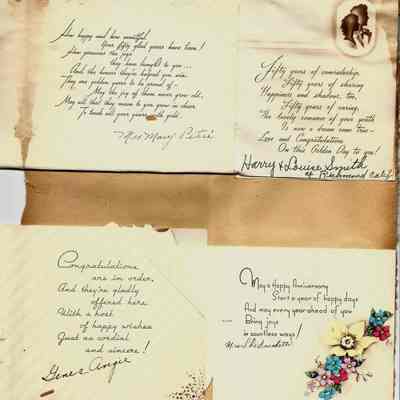 How happy and how beautiful
Your fifty glad years have been!
How precious the joys
they have brought to you ...
And the honors they've helped you win.
They are golden years to be proud of —
May the joy of them never grow old,
May all that they mean to you grow in cheer
To bands all your years with gold.
Mrs Mary Petrie
Fifty years of comradeship,
Fifty years of sharing
Happiness and shadows, too,
Fifty years of caring,
The lovely romance of your youth
Is now a dream come true —
Love and Congratulations
On this Golden Day to you!
Harry & Louise Smith
of Richmond Calif
Congratulations
are in order,
And they're gladly
offered here
With a host
of happy wishes
Just as cordial
and sincere!
Gene & Angie
May a Happy Anniversary
Start a year of happy days
And may every year ahead of you
Bring joys
in countless ways!
Mrs